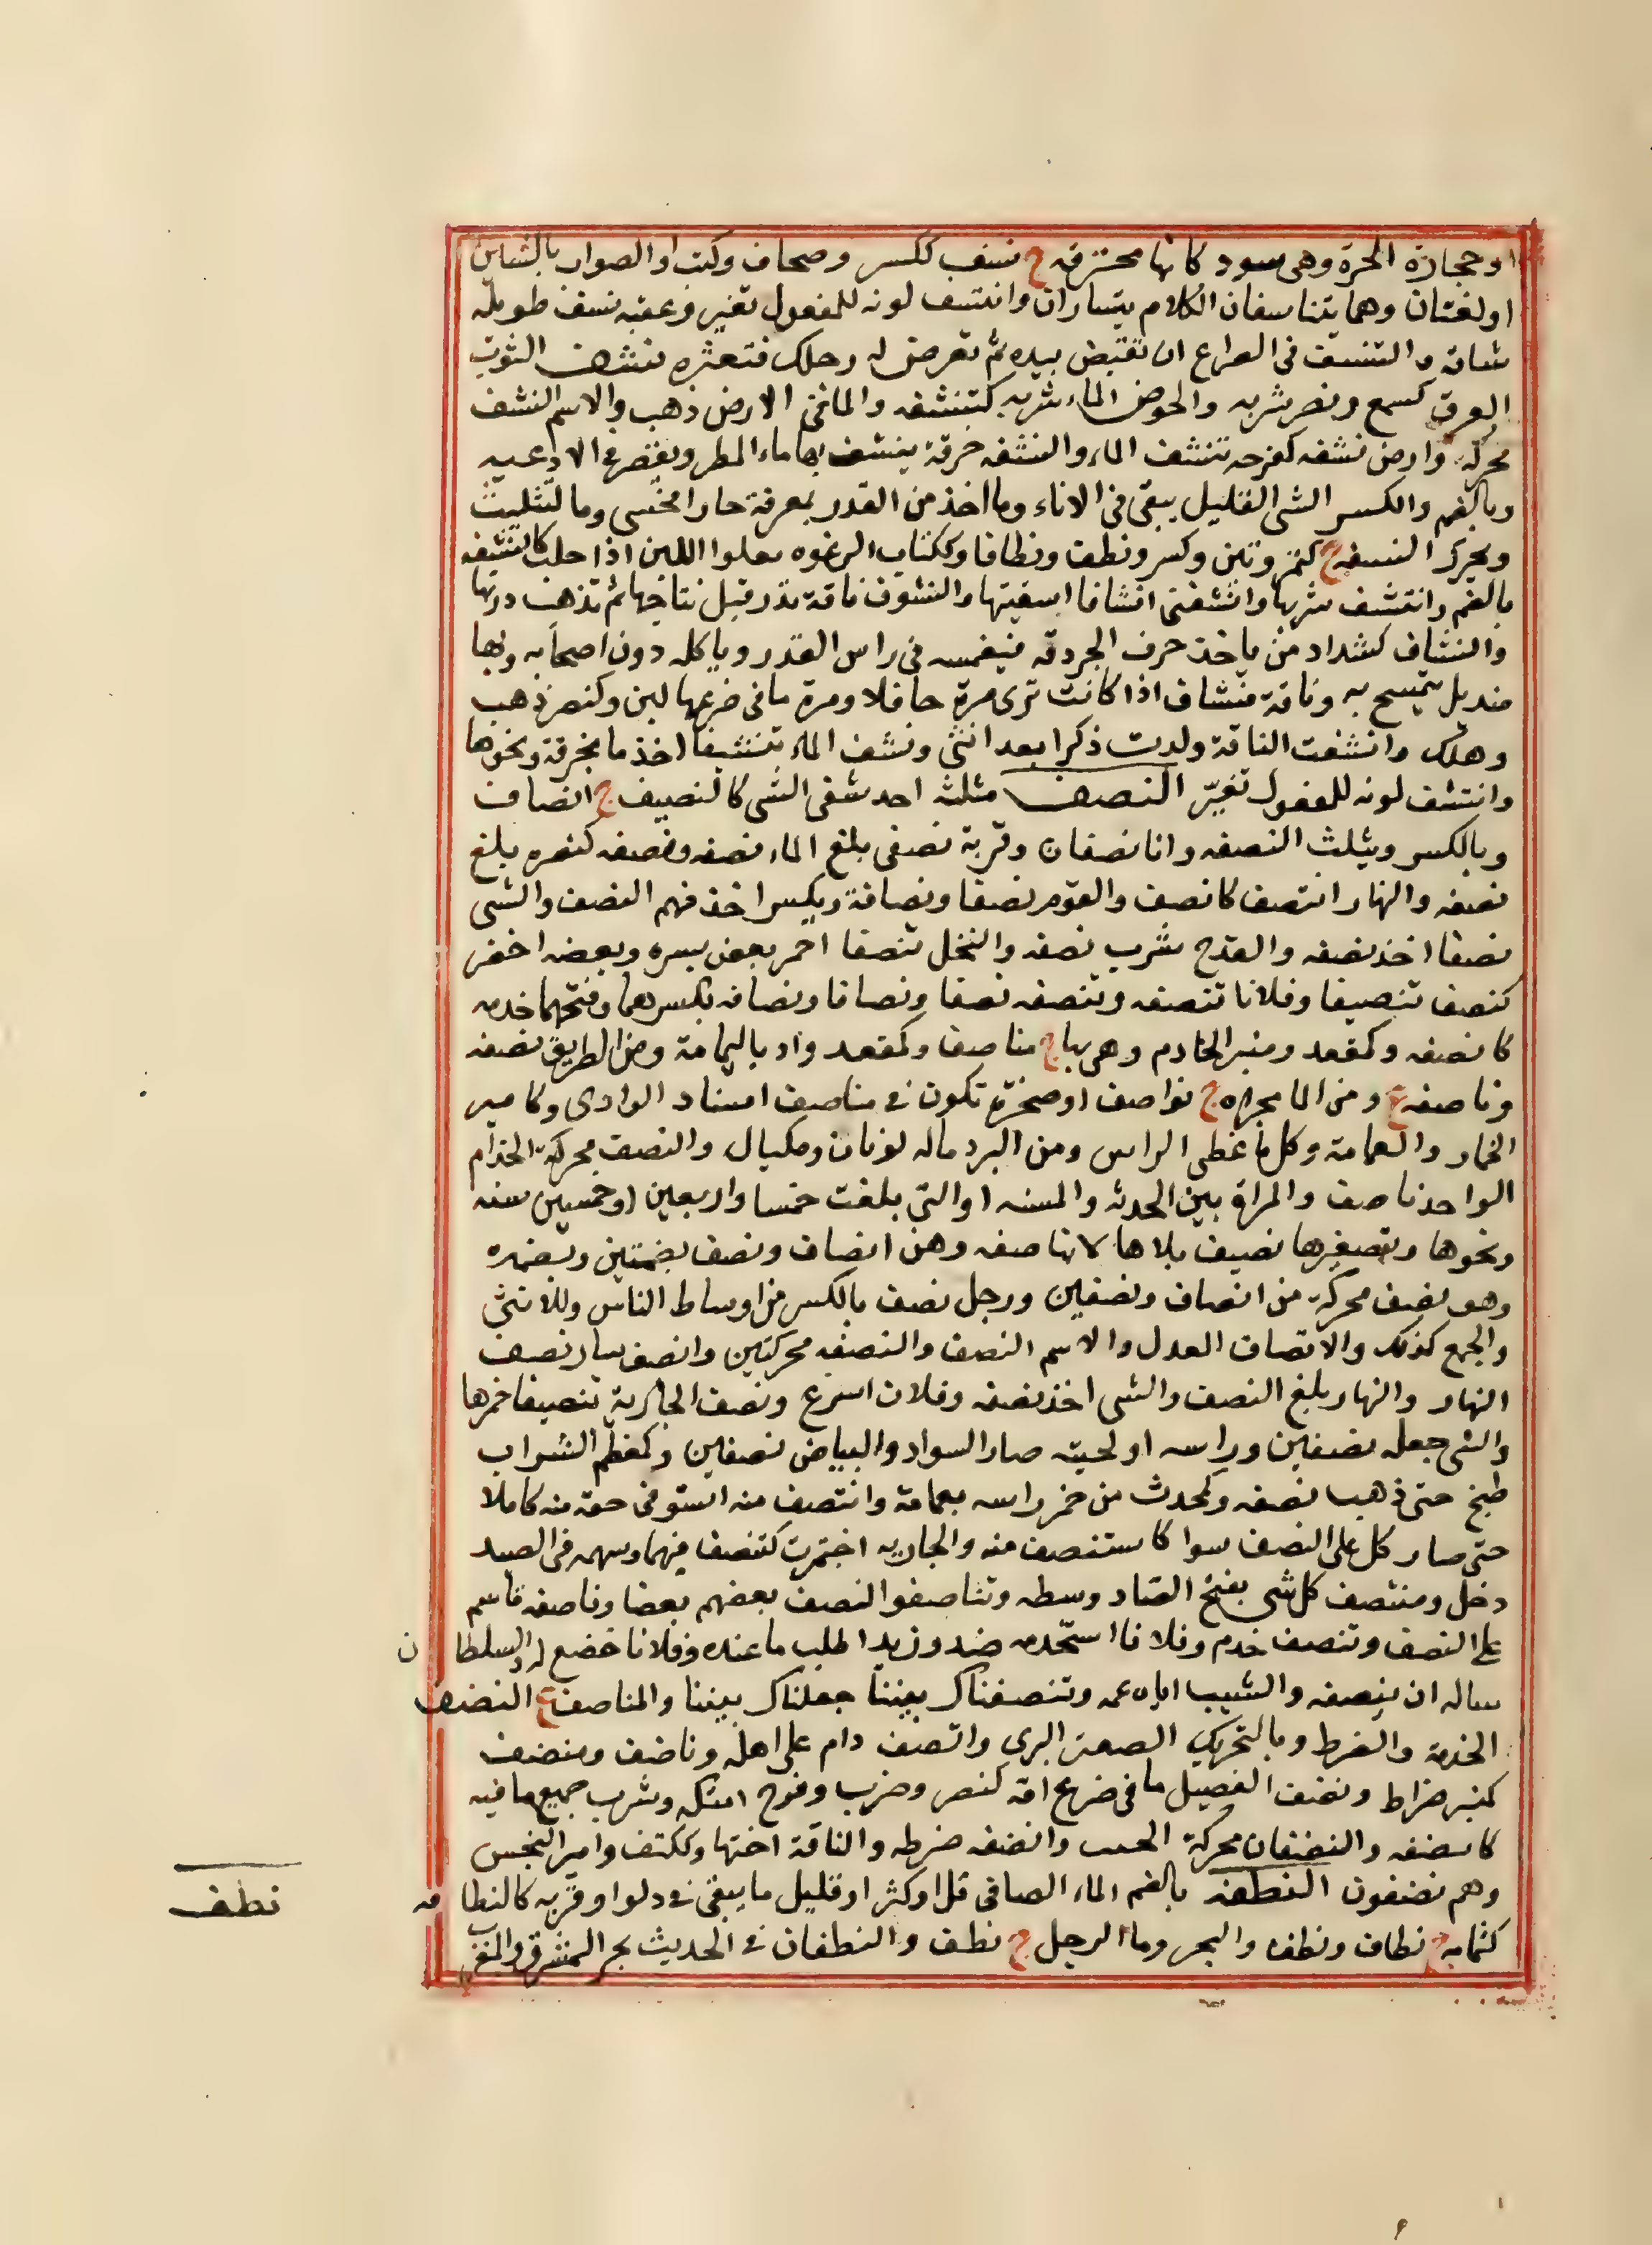 او حجارة الحرة وهى سود كانها محترقه ج نسف ككسر وصحاف وكتب او الصواب بالشين
او لغتان وهما يتناسفان الكلام يتساران وانتسف لونه للمفعول تغير وعقبه نسف طويله
شاقه والتنسف فى الصراع ان تقبض بيده ثم تعرض له رجلك فتعثره نشف الثوب
العرق كسمع ونصر شربه والحوض الماء شربه كتنشفه والما فى الارض ذهب والاسم النشف
محركة وارض نشفه كفرحه تنشف الماء والنشفه خرقة ينشف بها ماء المطر ويعصر فى الاوعيه
وبالضم والكسر الشى القليل يبقى فى الاناء وما اخذ من القدر بمغرفة حارا فحسى وبالتثليث
ويحرك النسفه ج كتمر وتين وكسر ونطف ونطافا وككتاب الرغوه تعلوا اللبن اذا حلب كالنشفه
بالضم وانتشف شربها وانشفنى انشافا اسقيتها والنشوف ناقة تدر قبل نتاجها ثم تذهب درتها
والنشاف كشداد من ياخذ حرف الجردقه فيغمسه فى راس القدر وياكله دون اصحابه وبها
منديل يتمسح به وناقة منشاف اذا كانت ترى مرة حافلا ومرة ما فى ضرعها لبن وكنصر ذهب
وهلك وانشفت الناقة ولدت ذكرا بعد انثى ونشف الماء تنشيفا اخذ ما بخرقة ونحوها
وانتشف لونه للمفعول تغيّر النصف مثلثه احد شقى الشى كالنصيف ج انصاف
وبالكسر ويثلث النصفه وانا نصفان وقربة نصفى بلغ الماء نصفه ونصفه كنصره بلغ
نصفه والنهار انتصف كانصف والقوم نصفا ونصافة ويكسر اخذ منهم النصف والشى
نصفا اخذ نصفه والقدح شرب نصفه والنخل تنصفا احمر بعض بسره وبعضه اخضر
كنصف تنصيفا وفلانا تنصفه وتنصفه نصفا ونصافا ونصافه بكسرهما وفتحهما خدمه
كانصفه وكمقعد ومنبر الخادم وهى بهاج مناصف وكمقعد واد باليمامة ومن الطريق نصفه
وناصفه ع ومن الما مجراه ج نواصف او صخرة تكون فى مناصف اسناد الوادى وكامير
الخمار والعمامة وكل ما غطى الراس ومن البرد ماله لونان ومكيال والنصف محركة الخدام
الواحد ناصف والمراة بين الحدثه والمسنه او التى بلغت خمسا واربعين او خمسين سنه
ونحوها وتصغيرها نصيف بلاها لانها صفه وهن انصاف ونصف بضمتين وبضمه
وهو نصف محركة من انصاف ونصفين ورجل نصف بالكسر من اوساط الناس وللانثى
والجمع كذلك والانصاف العدل والاسم النصف والنصفه محركتين وانصف سار نصف
النهار والنهار بلغ النصف والشى اخذ نصفه وفلان اسرع ونصف الجارية تنصيفا خمرها
والشى جعله نصفين وراسه او لحيته صار السواد والبياض نصفين وكمعظم الشراب
طبخ حتى ذهب نصفه وكمحدث من خمر راسه بعمامة وانتصف منه استوفى حقه منه كاملا
حتى صار كل على النصف سوا كاستنصف منه والجاريه اختمرت كتنصف فيهما وسهمه فى الصيد
دخل ومنتصف كل شى بفتح الصاد وسطه وتناصفوا النصف بعضهم بعضا وناصفه قاسم
على النصف وتنصف خدم وفلانا استخدمه ضد وزيدا طلب ما عنده وفلانا خضع له والسلطان
ساله ان ينصفه والشيب اياه عمه وتنصفناك بيننا جعلناك بيننا والمناصف ع النضف
الخدمة والضرط وبالتحريك الصعتر البرى وانضف دام على اهله وناضف ومنضف
كمنبر ضراط ونضف الفصيل ما فى ضرع امه كنصر وضرب وفرح امتكه وشرب جميع ما فيه
كانتضفه والنضفان محركة الخبب وانضفه ضرطه والناقة اخبها وككتف وامير النجس
وهم نضفون النطفه بالضم الماء الصافى قل او كثر او قليل ما يبقى فى دلو او قربه كالنطافه
كثمامه ج نطاف ونطف والبحر وما الرجل ج نطف والنطفان فى الحديث بحر المشرق والمغرب
نطف